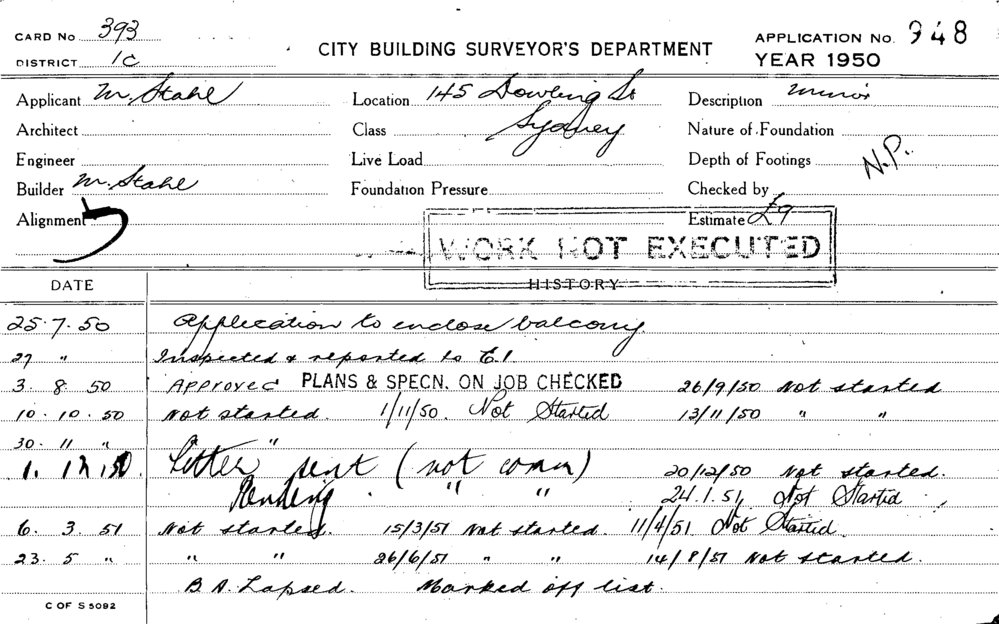 CARD No 393
DISTRICT 1C
CITY BUILDING SURVEYOR'S DEPARTMENT
APPLICATION No. 948
YEAR 1950
Applicant M. Stahl Location 145 Dowling St Description Minor
Architect Class Sydney Nature of Foundation
Engineer Live Load Depth of Footings N.P.
Builder M. Stahl Foundation Pressure Checked by
Alignment Estimate £9
WORK NOT EXECUTED
DATE HISTORY
25.7.50 Application to enclose balcony
27 " Inspected & reported to E.I
3. 8. 50 APPROVED PLANS & SPECN. ON JOB CHECKED 26/9/50 Not started
10.10.50 Not started. 1/11/50. Not Started 13/11/50 " "
30. 11 " " "
1. 12 50. Letter sent (not comm) 20/12/50 Not started.
Pending. " " 24.1.51. Not Started
6. 3. 51 Not started. 15/3/51 Not started. 11/4/51 Not Started.
23. 5 " " " 26/6/51 " " 14/8/51 Not started.
B.A. Lapsed. Marked off list.
C OF S 5092